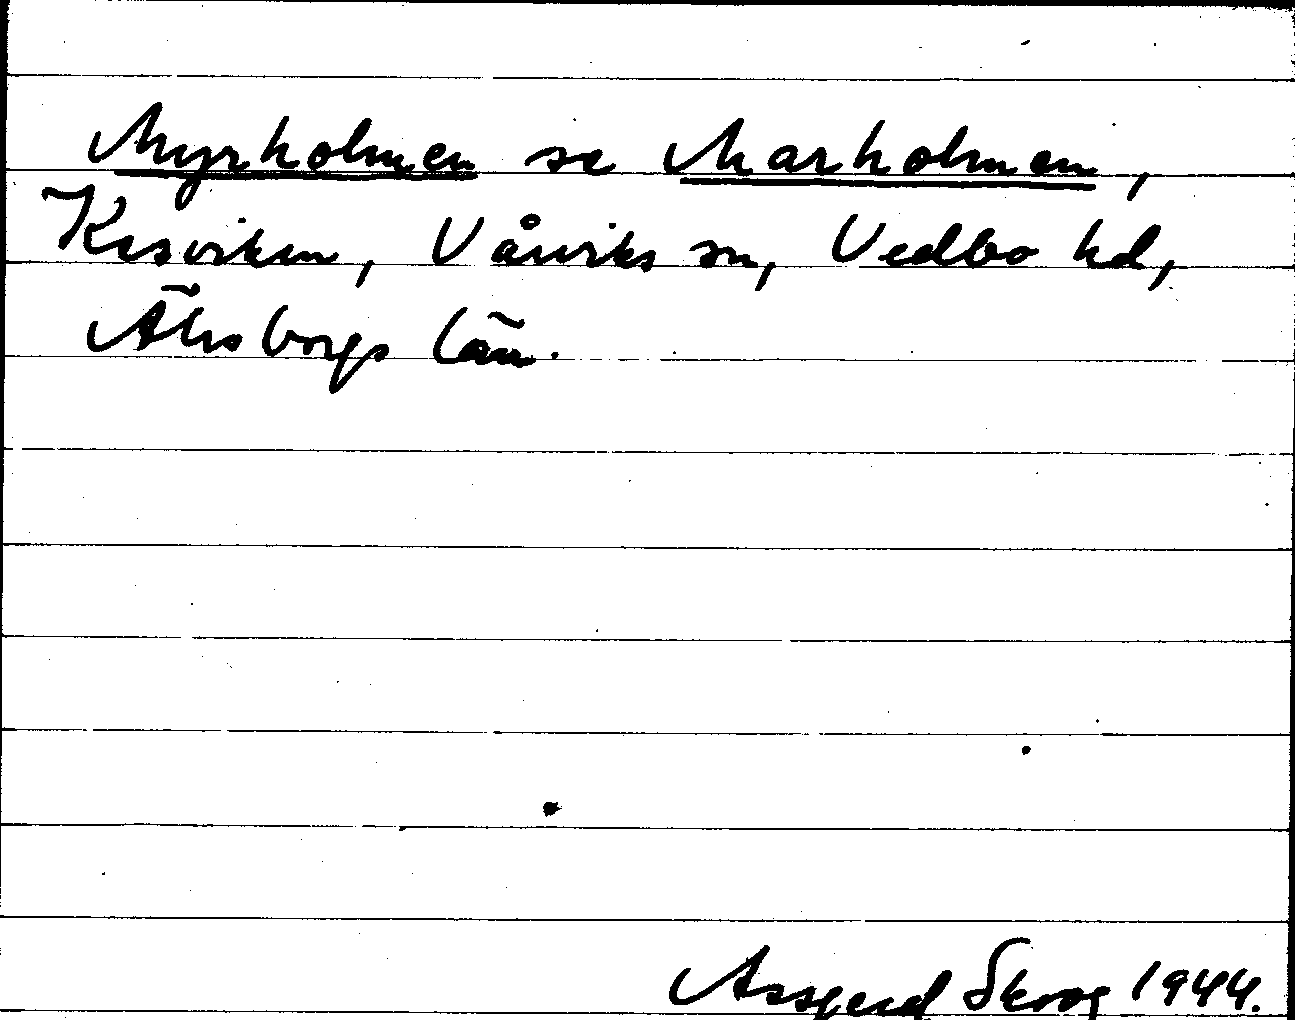 Myrholmen se Marholmen,
Kesviken, Vårviks sn, Vedbo hd,
Älvsborgs län.
Assgerd Skrog 1944.